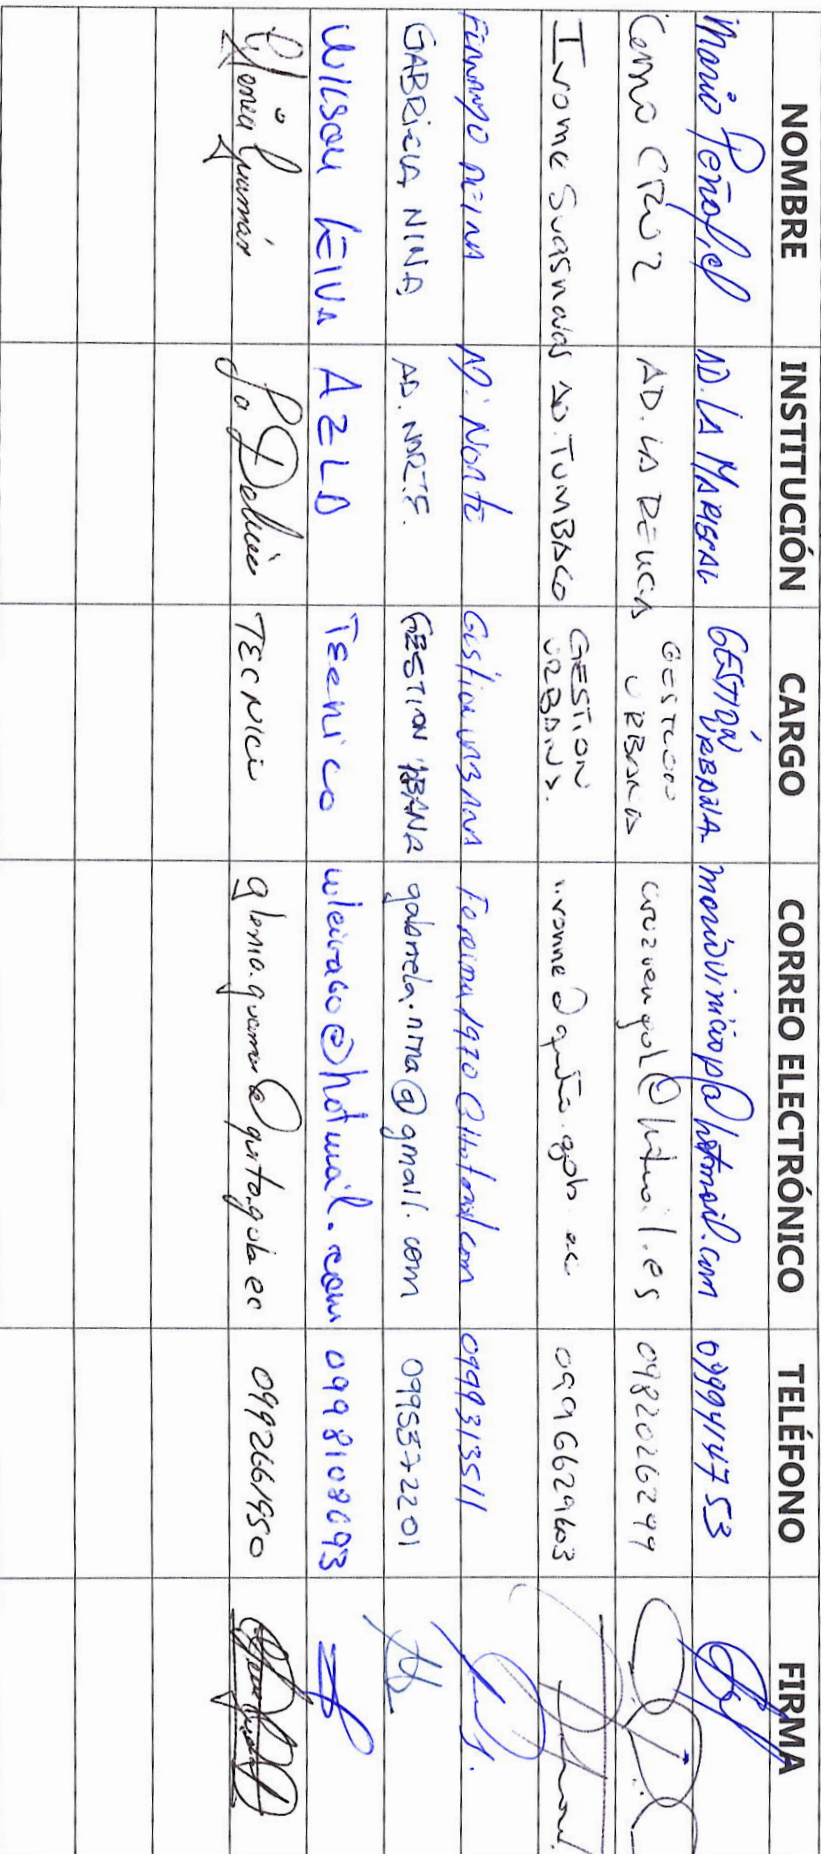 NOMBRE INSTITUCIÓN CARGO CORREO ELECTRÓNICO TELÉFONO FIRMA
Mario Peñafiel AD. LA MARISCAL GESTIÓN URBANA marioviniciop@hotmail.com 0999414753
CRUZ AD. LA DELICIA GESTION URBANA 0982026299
Ivonne AD. TUMBACO GESTION URBANA. 0996629603
Fernando REINA AD. Norte Gestion URBANA Foreina1970@hotmail.com 0999313511
GABRIELA NINA AD. NORTE. GESTION URBANA gabriela.nina@gmail.com 0995572201
Wilson LEIVA AZLD Tecnico wleiva60@hotmail.com 0998108693
Glenia Guamán La Delicia TECNICO glenia.guaman@quito.gob.ec 0992661950